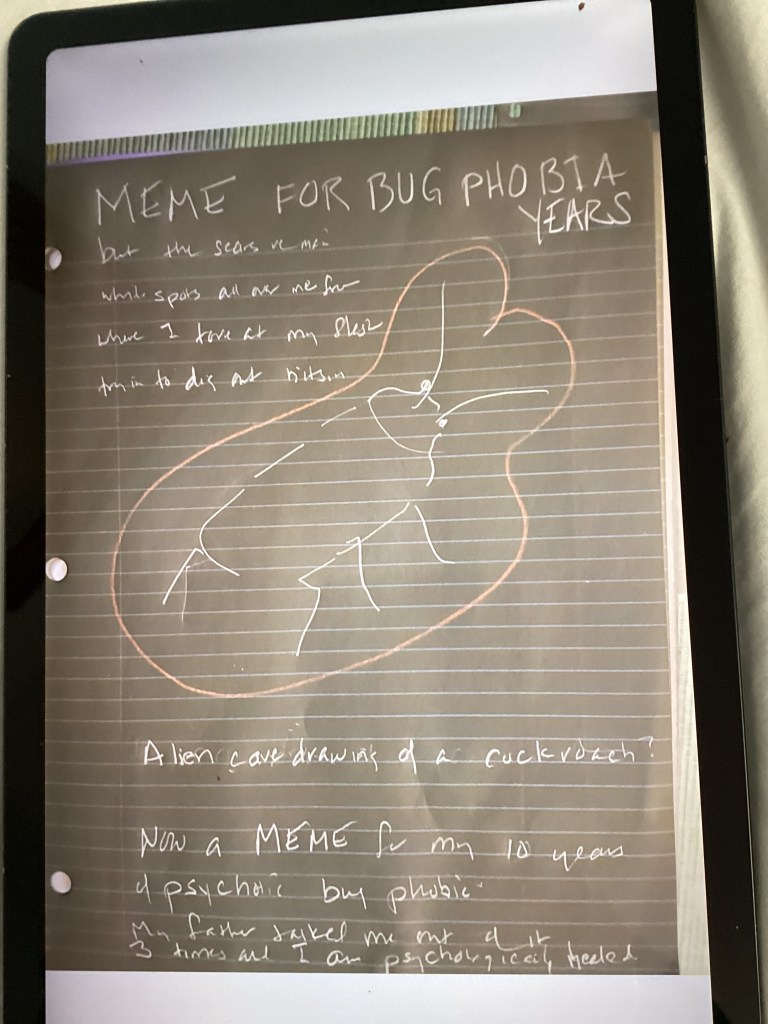 MEME FOR BUG PHOBIA
YEARS
but the scars remain
white spots all over me from
where I tore at my flesh
tryin to dig out
Alien cave drawing of a cuckroach?
Now a MEME for my 10 years
of psychotic bug phobic
My father talked me out of it
3 times and I am psychologically heeled